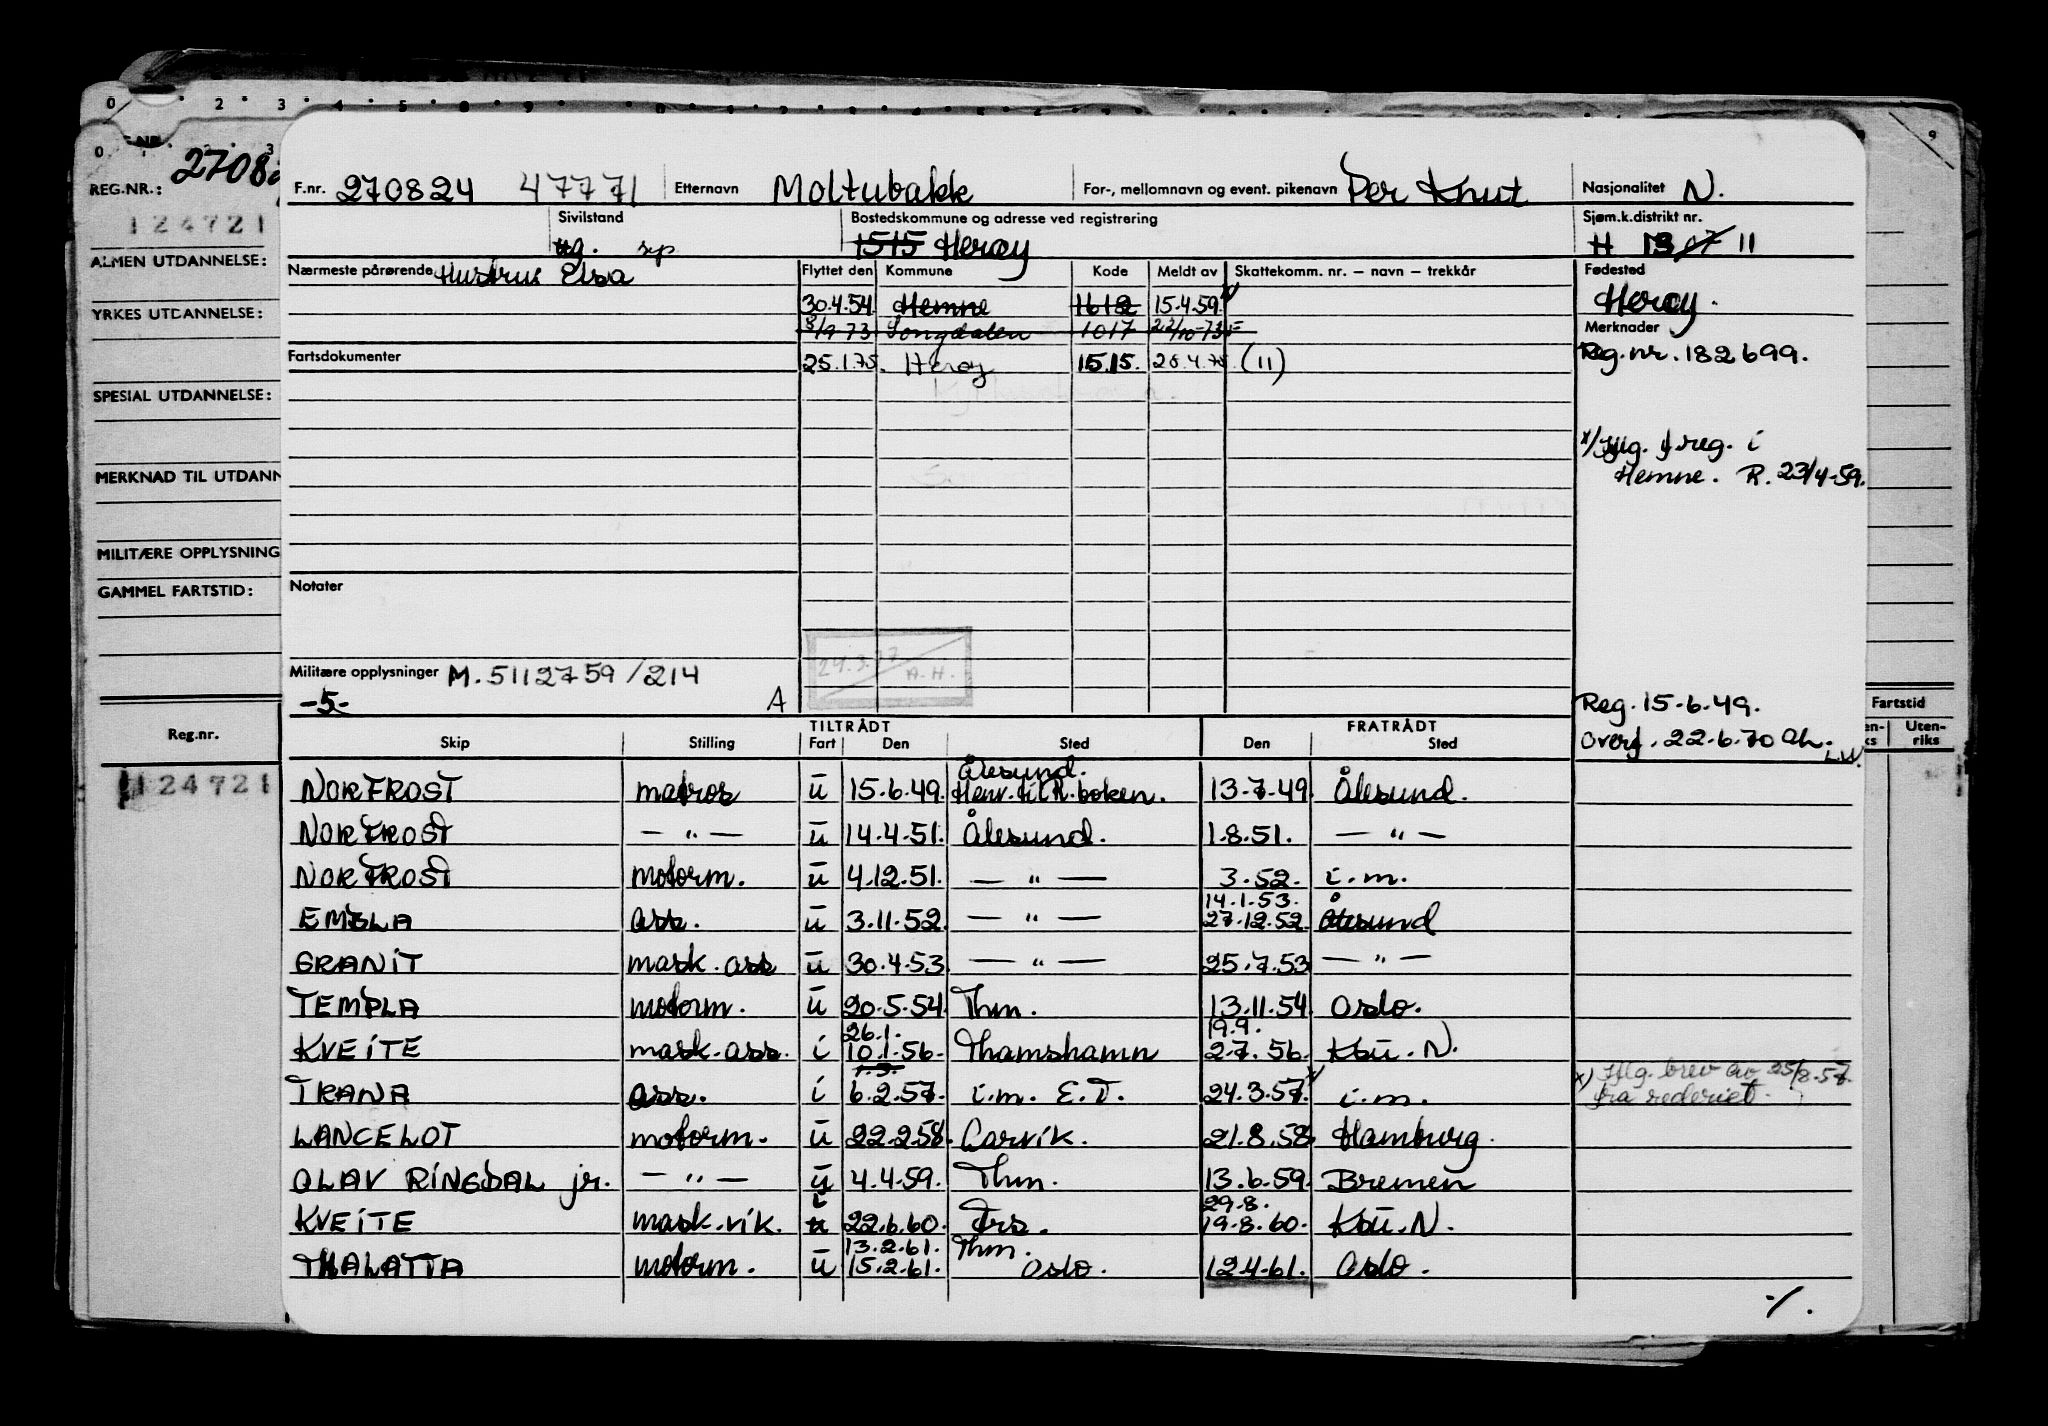 0 2 3 4 5 8 9
9
0 3
REG.NR.: 2708
124721
ALMEN UTDANNELSE:
YRKES UTDANNELSE:
SPESIAL UTDANNELSE:
MERKNAD TIL UTDANN
MILITÆRE OPPLYSNING
GAMMEL FARTSTID:
Reg.nr.
124721
F.nr. 270824 47771 Etternavn Moltubakk For-, mellomnavn og event. pikenavn Per Knut Nasjonalitet N.
Sivilstand Bostedskommune og adresse ved registrering Sjøm.k.distrikt nr.
ug. sep 1515 Herøy H 13 07 11
Nærmeste pårørende Hustru: Elsa Flyttet den Kommune Kode Meldt av Skattekomm. nr. – navn – trekkår Fødested
30.4.54 Hemne 1612 15.4.59 x/ Herøy.
8/9 73 Songdalen 1017 22/10-73 Merknader
Fartsdokumenter 25.1.75. Herøy 1515. 28.4.75 (11) Reg.nr. 182699.
x/ Iflg. f.reg. i
Hemne. R. 23/4-59.
Notater
24.3.77
A.H.
Militære opplysninger M. 5112759/214
-5- A
Reg. 15-6-49.
Overf. 22.6.70 Ah.
L.W.
TILTRÅDT FRATRÅDT Fartstid
Skip Stilling Fart Den Sted Den Sted Uten-
riks
NORFROST matros ū 15.6.49. Ålesund. Henv. til R. boken. 13-7-49. Ålesund.
NORFROST — " — ū 14.4.51. Ålesund. 1.8.51. — " —
NORFROST motorm. ū 4.12.51. — " — 3.52. i.m.
14.1.53.
EMBLA ass. ū 3.11.52. — " — 27.12.52. Ålesund
GRANIT mask. ass ū 30.4.53. — " — 25.7.53 — " —
TEMPLA motorm. ū 20.5.54. Thm. 13.11.54. Oslo.
26.1. 19.9.
KVEITE mask. ass. i 10.1.56. Thamshamn 2.7.56. KSū. N.
1.3.
TRANA ass. i 6.2.57. i.m. E.T. 24.3.57. x/ i.m. x) Iflg. brev av 25/8-57. fra rederiet.
LANCELOT motorm. ū 22.2.58. Larvik. 21.8.58. Hamburg.
OLAV RINGDAL jr. — " — ū 4.4.59. Thm. 13.6.59. Bremen
i 29.8.
KVEITE mask. vik. ū 22.6.60. Trs. 19.8.60. KSū. N.
13.2.61. Thm.
THALATTA motorm. ū 15.2.61. Oslo. 12.4.61. Oslo.
./.